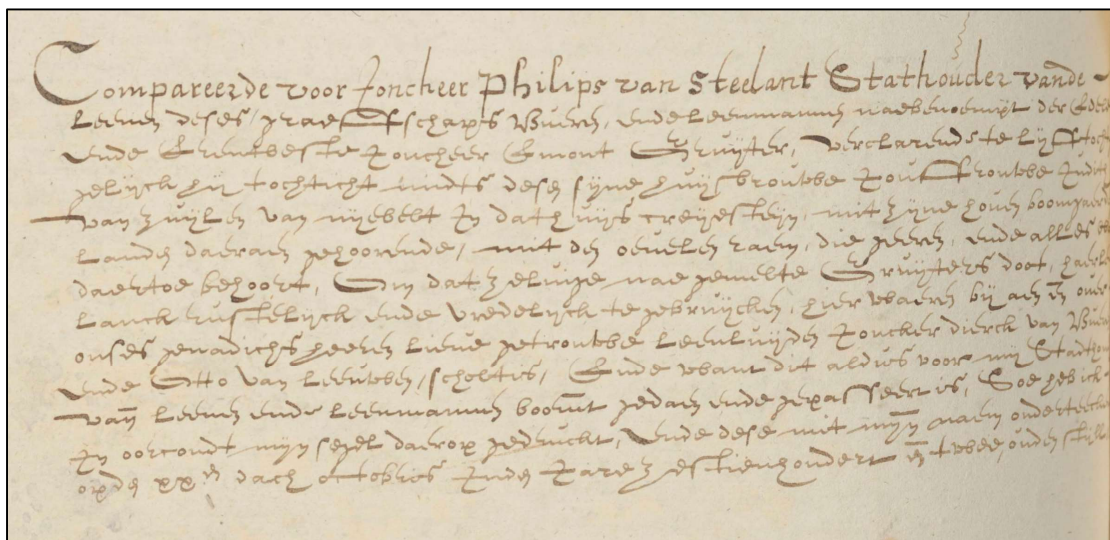 Compareerde voor Joncheer Philips van Steelant Stathouder vande
Leenen deses Graeffschaps Buren, ende Leenmannen naebenoempt der Edele
ende Erentveste Joncheer Gruijter, verclarende te
gelijck hij tochticht midts desen sijne huijsvrouwe Jouffrouwe
van Zuijlen van nijevelt in dat huijs mit zijne hoven boomgaerden
Landen daeraen gehoorende, mit den die geeren, ende alles
daertoe behoort, Om dat zeluige nae gemelte Gruijters doot, haer
Lanck rustelijck ende vredelijck te gebruijcken, hier waeren bij aen en over
onses genadichs heeren Lieve getrouwe Leenluijden Joncher dierck van Buren
ende Otto van Leeuwen, scholtis, Ende want dit aldus voor mij Stathouder
van Leenen ende Leenmannen boeven gedaen ende gepasseert is, Soe heb ick
in oorcondt mijn segel daerop gedruckt, ende dese mit mijn naem onderteeckent
op den xxen dach octobris inden Jare zestienhondert en twee, ouden stijl